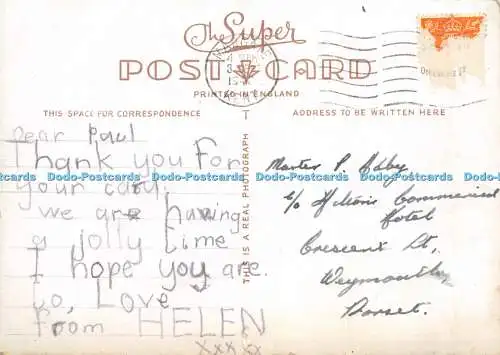 The Super
POST CARD
PRINTED IN ENGLAND
THIS SPACE FOR CORRESPONDENCE
ADDRESS TO BE WRITTEN HERE
THIS IS A REAL PHOTOGRAPH
Dear Paul
Thank you For
your card,
we are having
a jolly time
I hope you are.
to, Love
from HELEN
xxxxx
Master P. Abby
c/o Commercial
Hotel
Crescent St,
Weymouth,
Dorset.
Dodo-Postcards Dodo-Postcards Dodo-Postcards Dodo-Postcards Dodo-Postcards